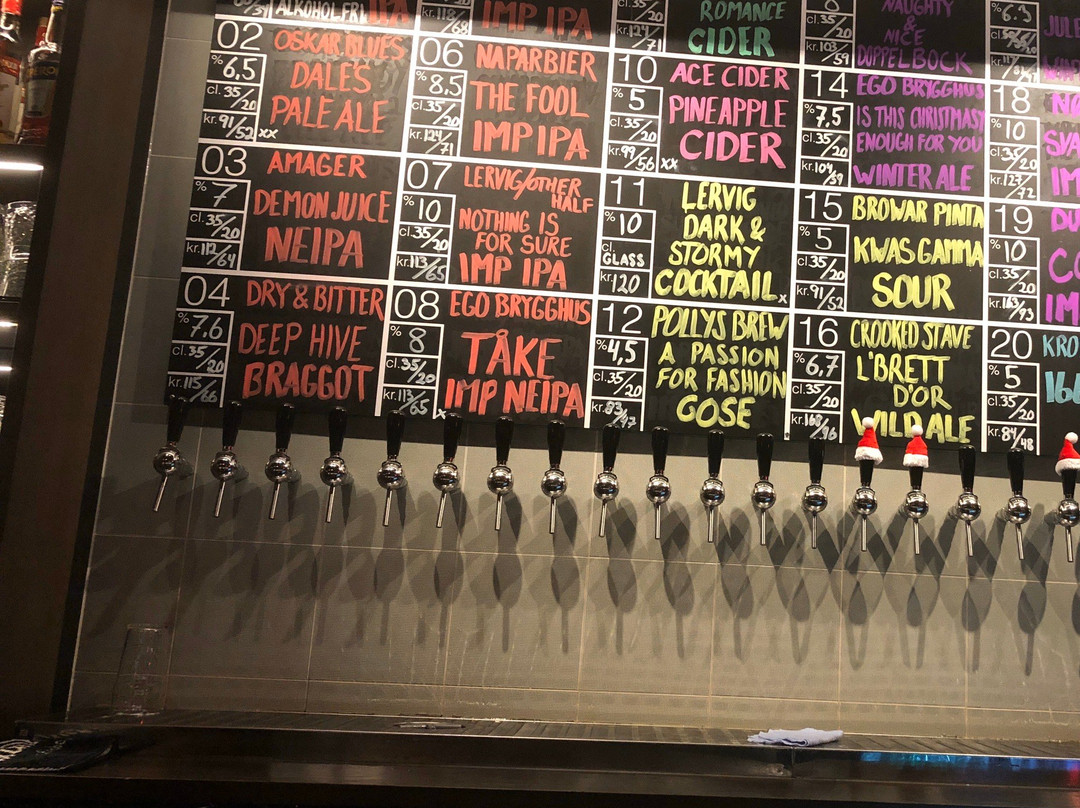 ALKOHOLFRI
IPA
kr. 118/68
IMP IPA
cl. 35/20
kr. 124/71
ROMANCE
CIDER
cl. 35/20
kr. 103/59
NAUGHTY
&
NICE
DOPPELBOCK
% 6.3
02
% 6,5
cl. 35/20
kr. 91/52 xx
OSKAR BLUES
DALES
PALE ALE
06
% 8,5
cl. 35/20
kr. 124/71
NAPARBIER
THE FOOL
IMP IPA
10
% 5
cl. 35/20
kr. 99/56 xx
ACE CIDER
PINEAPPLE
CIDER
14
% 7,5
cl. 35/20
kr. 104/59
EGO BRYGGHUS
IS THIS CHRISTMASY
ENOUGH FOR YOU
WINTER ALE
18
% 10
cl. 35/20
kr. 127/72
03
% 7
cl. 35/20
kr. 112/64
AMAGER
DEMON JUICE
NEIPA
07
% 10
cl. 35/20
kr. 113/65
LERVIG/OTHER
HALF
NOTHING IS
FOR SURE
IMP IPA
11
% 10
cl. GLASS
kr. 120
LERVIG
DARK &
STORMY
COCKTAIL x
15
% 5
cl. 35/20
kr. 91/52
BROWAR PINTA
KWAS GAMMA
SOUR
19
% 10
cl. 35/20
kr. 163/93
04
% 7.6
cl. 35/20
kr. 115/66
DRY & BITTER
DEEP HIVE
BRAGGOT
08
% 8
cl. 35/20
kr. 113/65 x
EGO BRYGGHUS
TÅKE
IMP NEIPA
12
% 4,5
cl. 35/20
kr. 83/47
POLLYS BREW
A PASSION
FOR FASHION
GOSE
16
% 6,7
cl. 35/20
kr. 168/96
CROOKED STAVE
L'BRETT
D'OR
WILD ALE
20
% 5
cl. 35/20
kr. 84/48
KRO